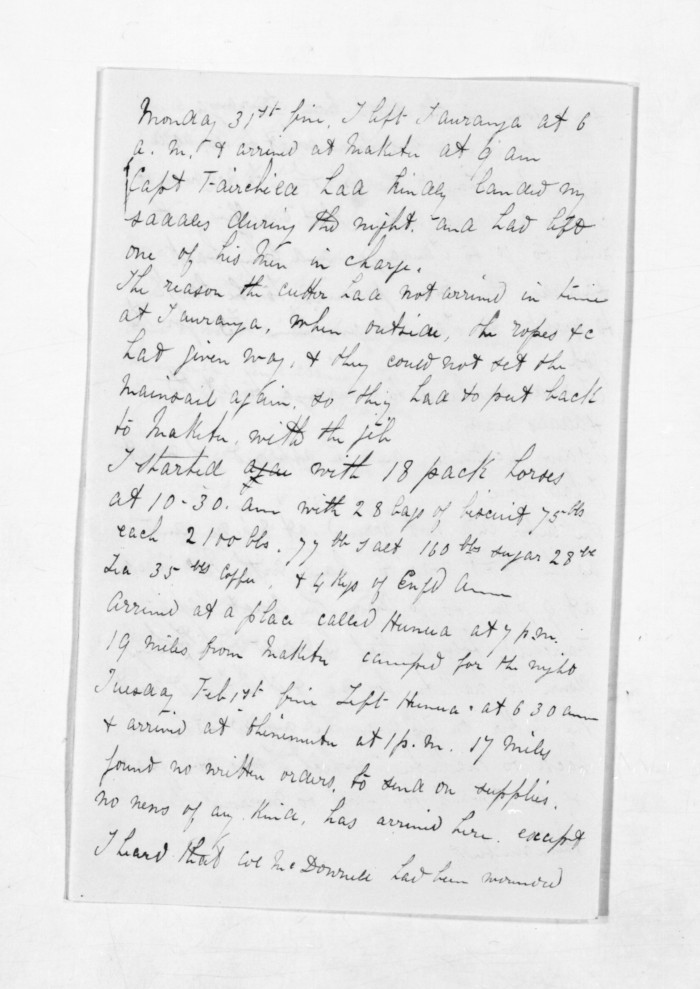 Monday 31st fine. I left Tauranga at 6
a.m. & arrived at Maketu at 9 am
Capt Fairchild had kindly landed my
saddles during the night. and had left
one of his Men in charge.
The reason the cutter had not arrived in time
at Tauranga, when outside, the ropes &c
had given way, & they could not set the
Mainsail again. so they had to put back
to Maketu, with the jib
I started with 18 pack horses
at 10-30. am with 28 bags of biscuit 75 lbs
each 2100 lbs. 77 lb salt 160 lbs sugar 28 lbs
Tea 35 lbs Coffee, & 4 Kegs of Enfd Amm
Arrived at a place called Hunua at 7 p.m.
19 miles from Maketu camped for the night
Tuesday Feb 1st fine Left Hunua at 6 30 am
& arrived at Ohinemutu at 1 p.m. 17 miles
found no written orders, to send on supplies.
no news of any kind, has arrived here. except
I heard that Col McDonnell had been wounded